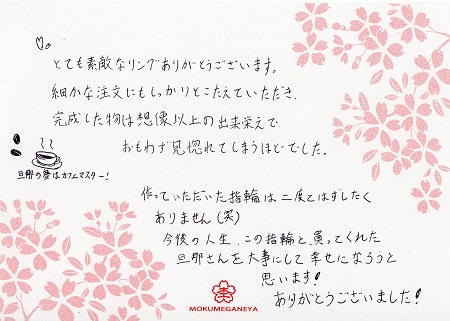 とても素敵なリングありがとうございます。
細かな注文にもしっかりとこたえていただき、
完成した物は想像以上の出来栄えで
おもわず見惚れてしまうほどでした。
旦那の夢はカフェマスター!
作っていただいた指輪は二度とはずしたく
ありません(笑)
今後の人生、この指輪と、買ってくれた
旦那さんを大事にして幸せになろうと
思います!
ありがとうございました!
MOKUMEGANEYA